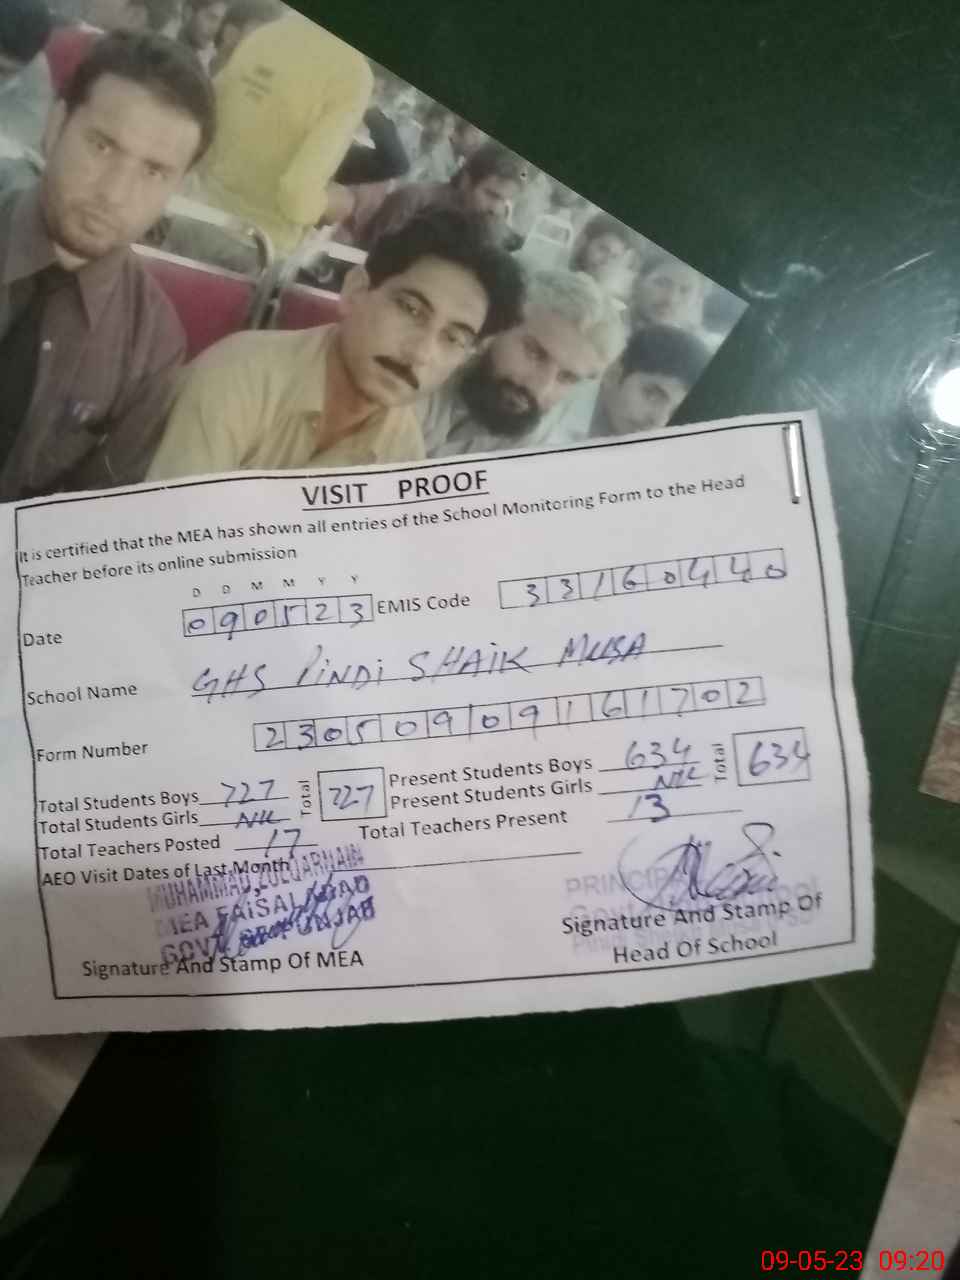 VISIT PROOF
It is certified that the MEA has shown all entries of the School Monitoring Form to the Head
Teacher before its online submission
D D M M Y Y
Date 090523 EMIS Code 33160440
School Name GHS PINDI SHAIK MUSA
Form Number 23050909161702
Total Students Boys 727 Total 727 Present Students Boys 634 Total 634
Total Students Girls NIL Present Students Girls NIL
Total Teachers Posted 17 Total Teachers Present 13
AEO Visit Dates of Last Month
MUHAMMAD ZULQARNAIN
MEA FAISALABAD
GOVT. OF PUNJAB
PRINCIPAL
Signature And Stamp Of MEA
Signature And Stamp Of
Head Of School
09-05-23 09:20